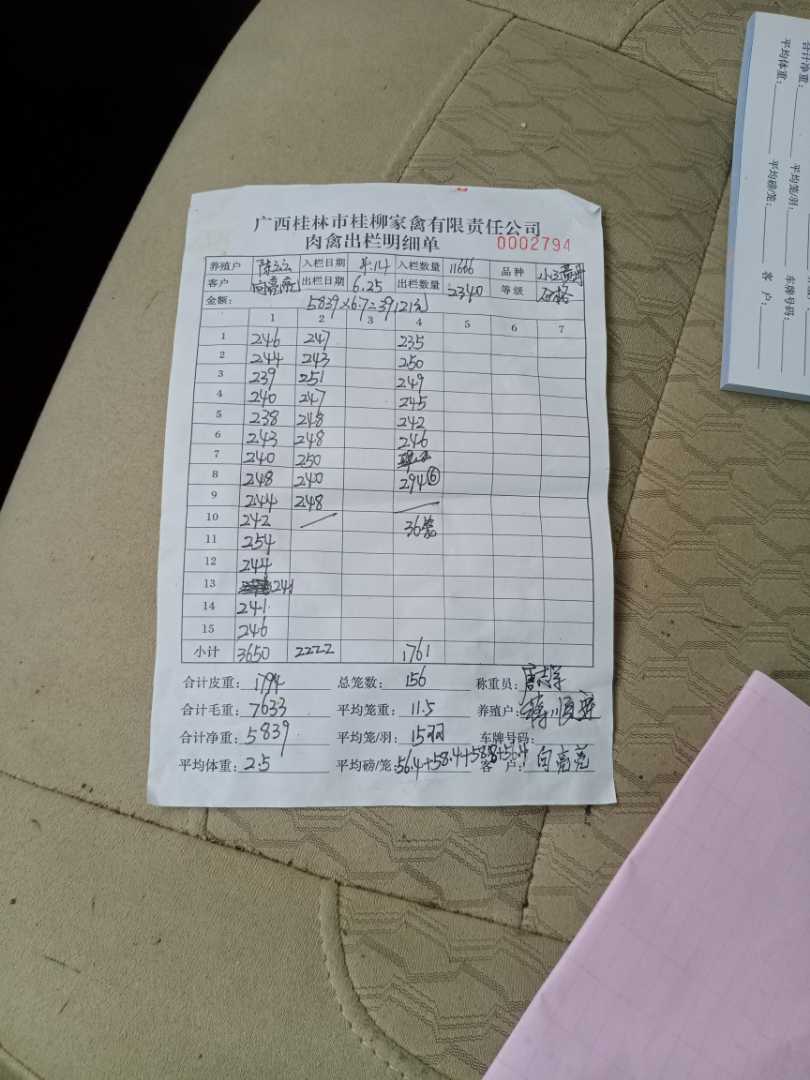 广西桂林市桂柳家禽有限责任公司
肉禽出栏明细单 0002794
养殖户 入栏日期 4.14 入栏数量 11666 品种
客户 向亮亮 出栏日期 6.25 出栏数量 2340 等级
金额： 5839×6.7=39121元
1 2 3 4 5 6 7
1 246 247 235
2 244 243 250
3 239 251 249
4 240 247 245
5 238 248 242
6 243 248 246
7 240 250
8 248 240 294⑥
9 244 248
10 242 36笼
11 254
12 244
13 241
14 241
15 246
小计 3650 2222 1761
合计皮重：1794 总笼数：156 称重员：
合计毛重：7633 平均笼重：11.5 养殖户：
合计净重：5839 平均笼/羽：15羽 车牌号码：
平均体重：2.5 平均磅/笼：56.4+58.4+58.8+56.4 客户：向亮亮
合计净重：
平均体重： 平均笼/羽： 车牌号码：
平均磅/笼： 客户：